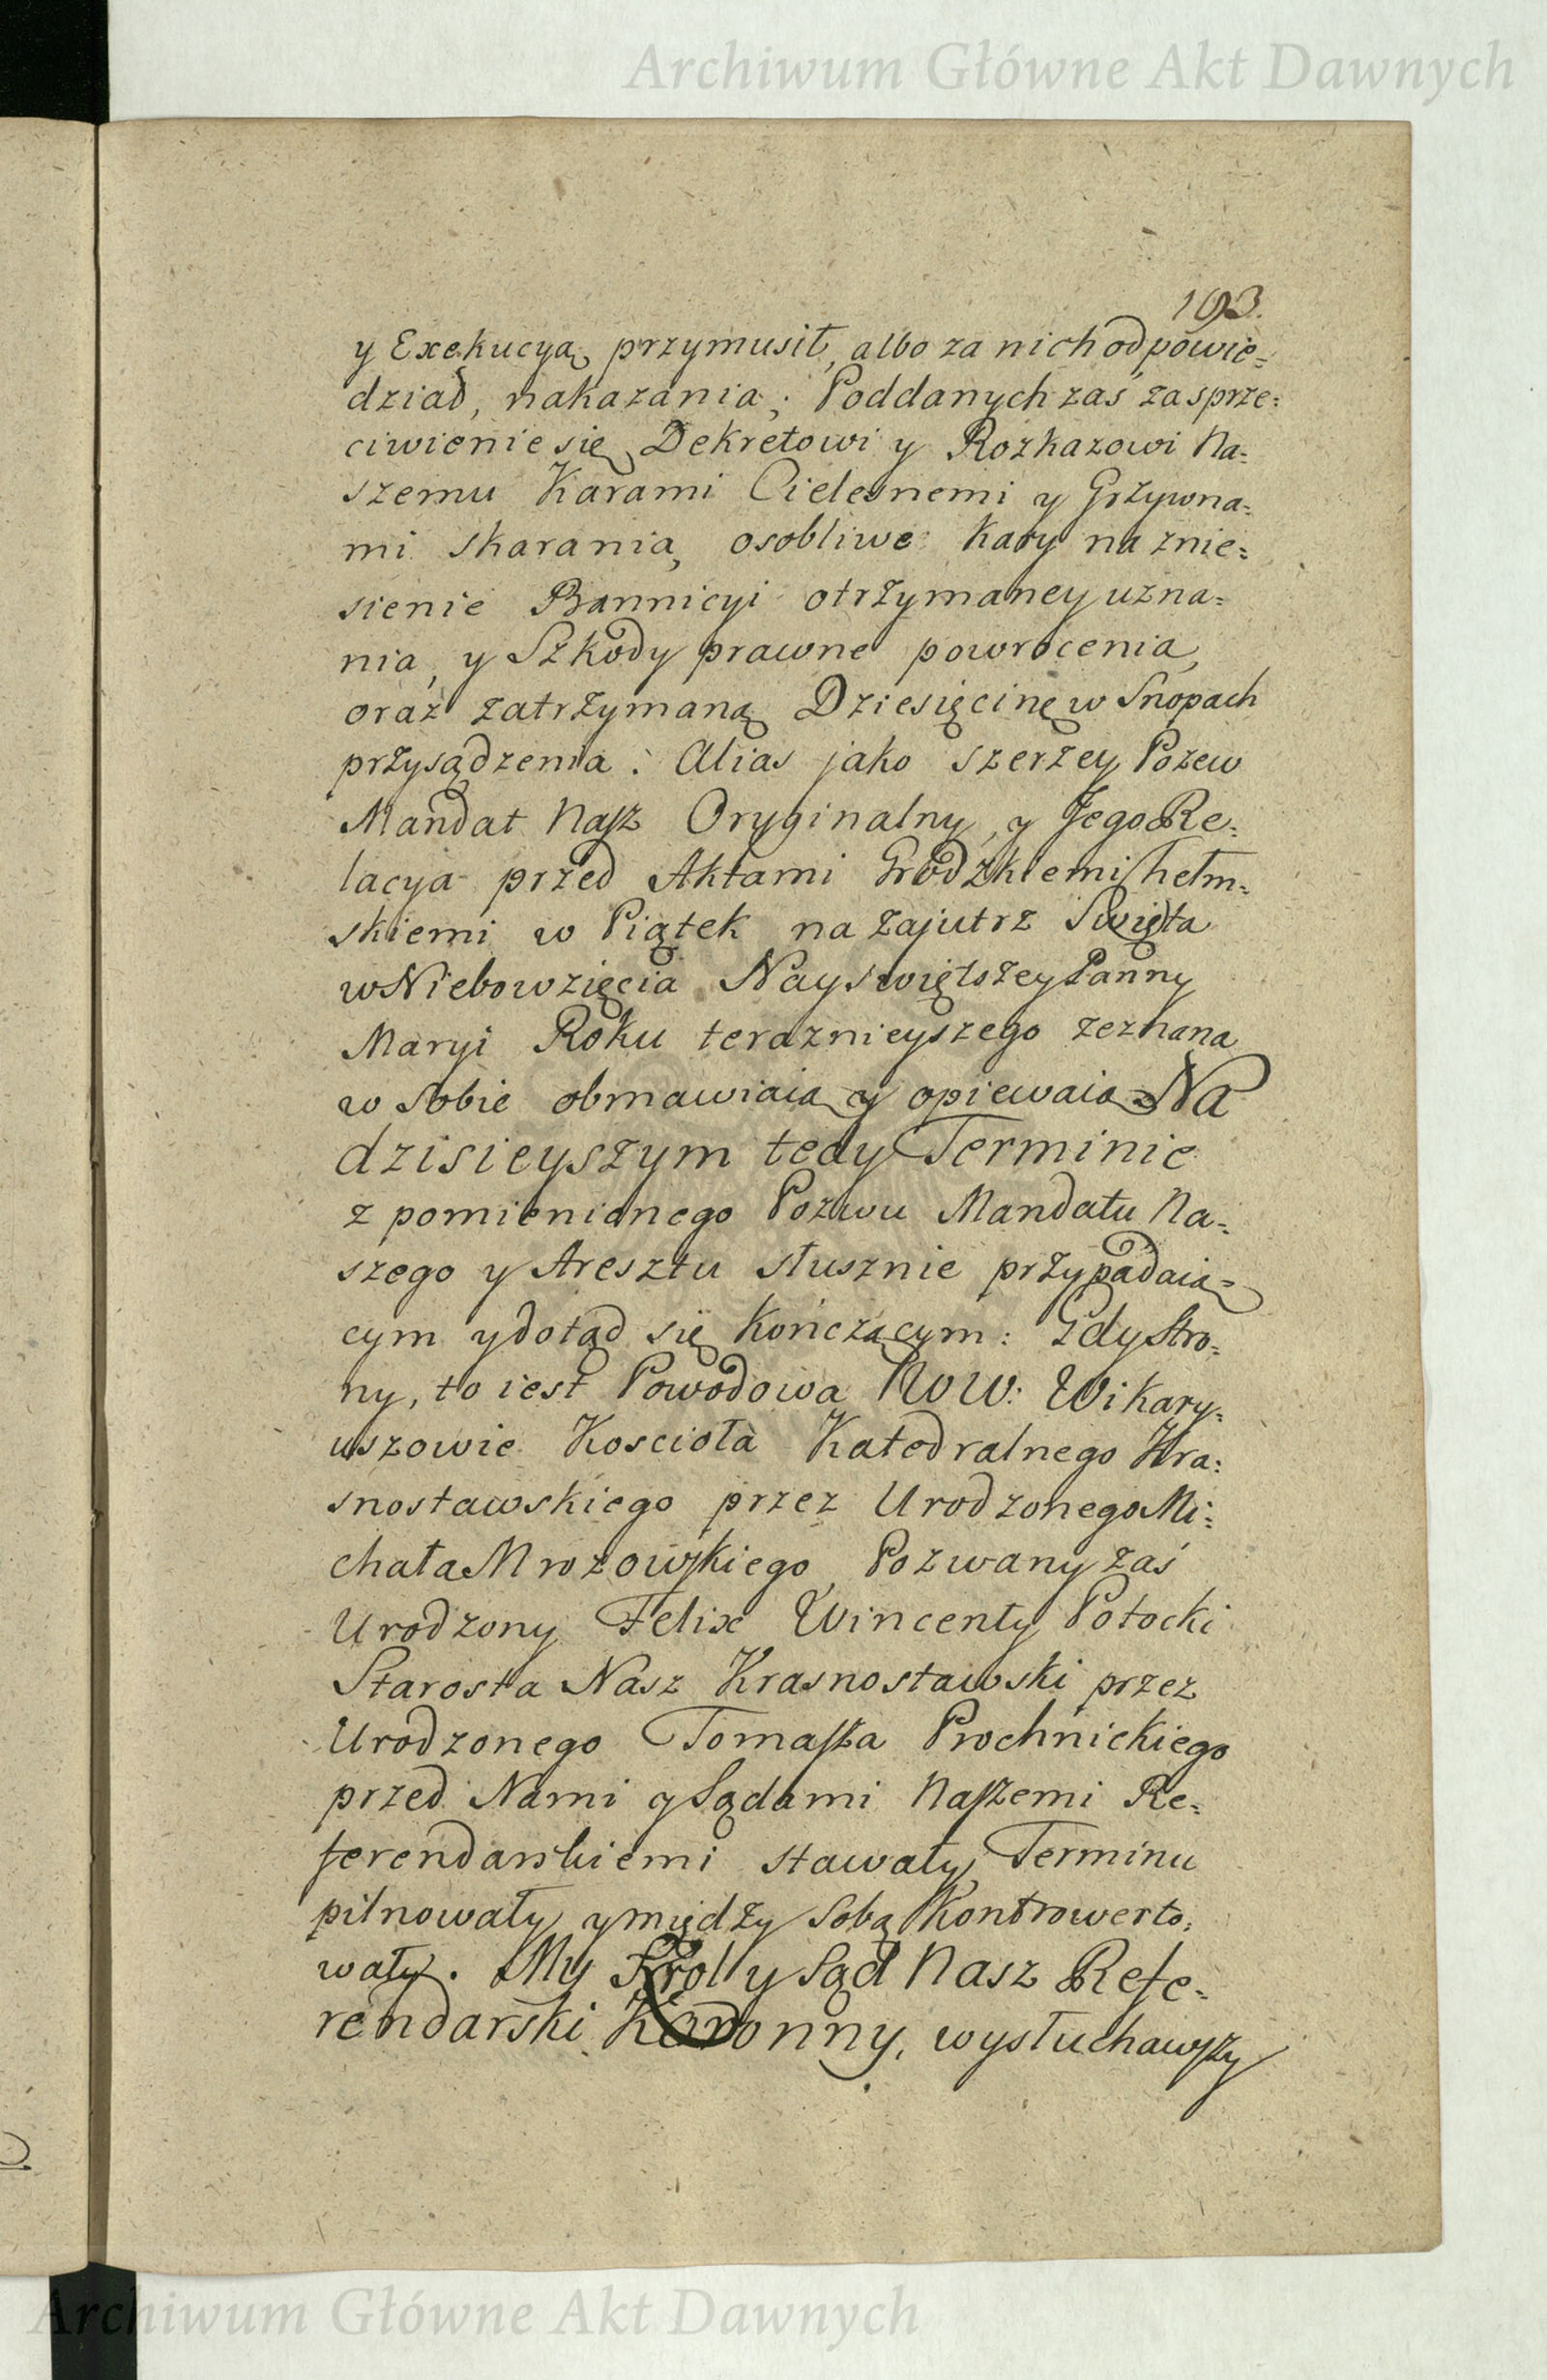 Archiwum Główne Akt Dawnych
193.
y Exekucyą przymusił, albo za nich odpowie=
dział, nakazania; Poddanych zaś za sprze=
ciwienie się Dekretowi y Rozkazowi Na=
szemu Karami Cielesnemi y Grzywna=
mi skarania, osobliwe kary na znie=
sienie Bannicyi otrzymaney uzna=
nia, y Szkody prawne powrocenia,
oraz zatrzymaną Dziesięcinę w Snopach
przysądzenia: Alias jako szerzey Pozew
Mandat Nasz Oryginalny, y Jego Re=
lacya przed Aktami Grodzkiemi Chełm=
skiemi w Piątek na zajutrz Swięta
w Niebowzięcia Nayswiętszey Panny
Maryi Roku teraznieyszego zeznana
w sobie obmawiaią y opiewaią Na
dzisieyszym tedy Terminie
z pomienionego Pozwu Mandatu Na=
szego y Aresztu słusznie przypadaią=
cym y dotąd się kończącym: Gdy Stro=
ny, to iest Powodowa WW: Wikary=
uszowie Koscioła Katedralnego Kra=
snostawskiego przez Urodzonego Mi=
chała Mrozowskiego, Pozwany zaś
Urodzony Felix Wincenty Potocki
Starosta Nasz Krasnostawski przez
Urodzonego Tomasza Prochnickiego
przed Nami y Sądami Naszemi Re=
ferendarskiemi stawały, Terminu
pilnowały y między sobą kontrowerto=
wały. My Krol y Sąd Nasz Refe=
rendarski Koronny, wysłuchawszy
Archiwum Główne Akt Dawnych